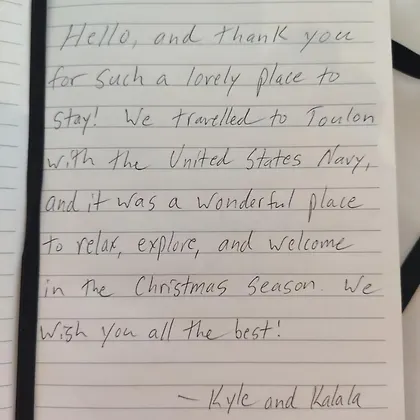 Hello, and thank you
for such a lovely place to
stay! We travelled to Toulon
with the United States Navy,
and it was a wonderful place
to relax, explore, and welcome
in the Christmas season. We
wish you all the best!
- Kyle and Kalala